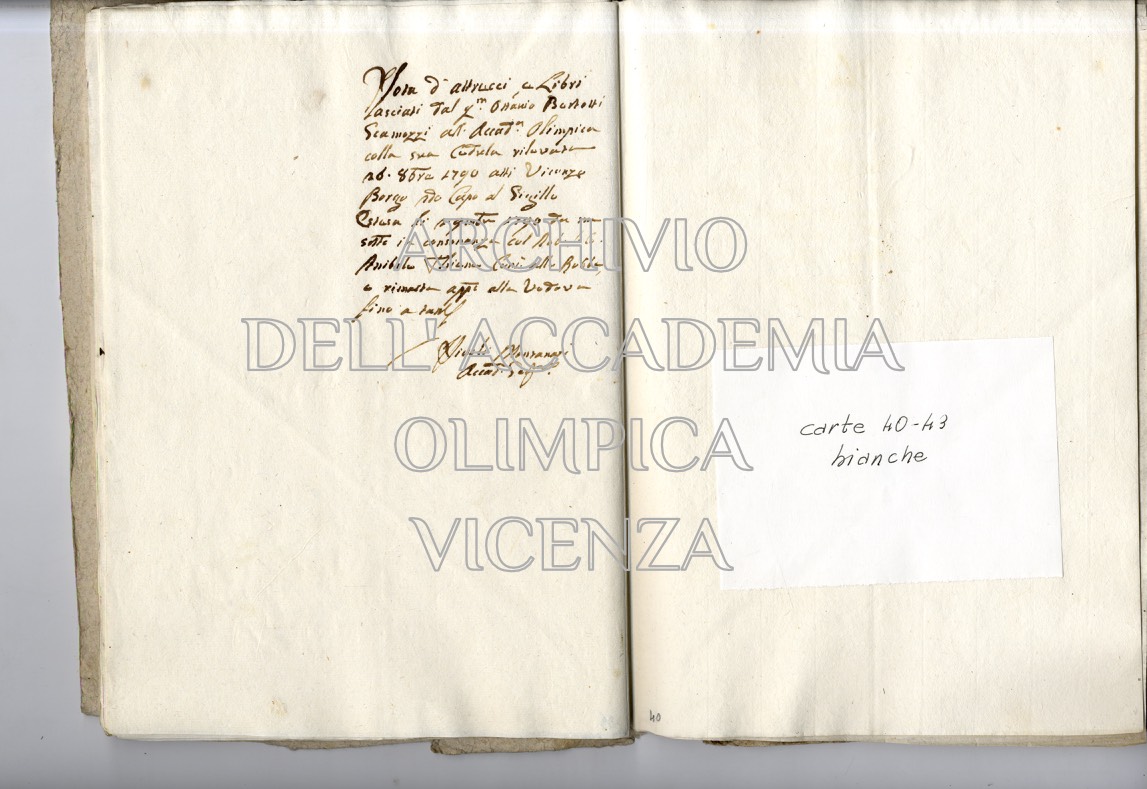 Nota d'attrecci, e Libri
lasciati dal qm. Ottavio Bertotti
Scamozzi all' Accad.a Olimpica
colla sua Cedula rilevata
26. 8bre 1790 atti Vicenzo
Borgo Capo al Sigillo
1790 da me
sotto in consonanza col Nob.
Anibale Thiene
e rimasta app. alla Vedova
fino a tanto
Accad. Seg.
ARCHIVIO
DELL'ACCADEMIA
OLIMPICA
VICENZA
carte 40-43
bianche
40